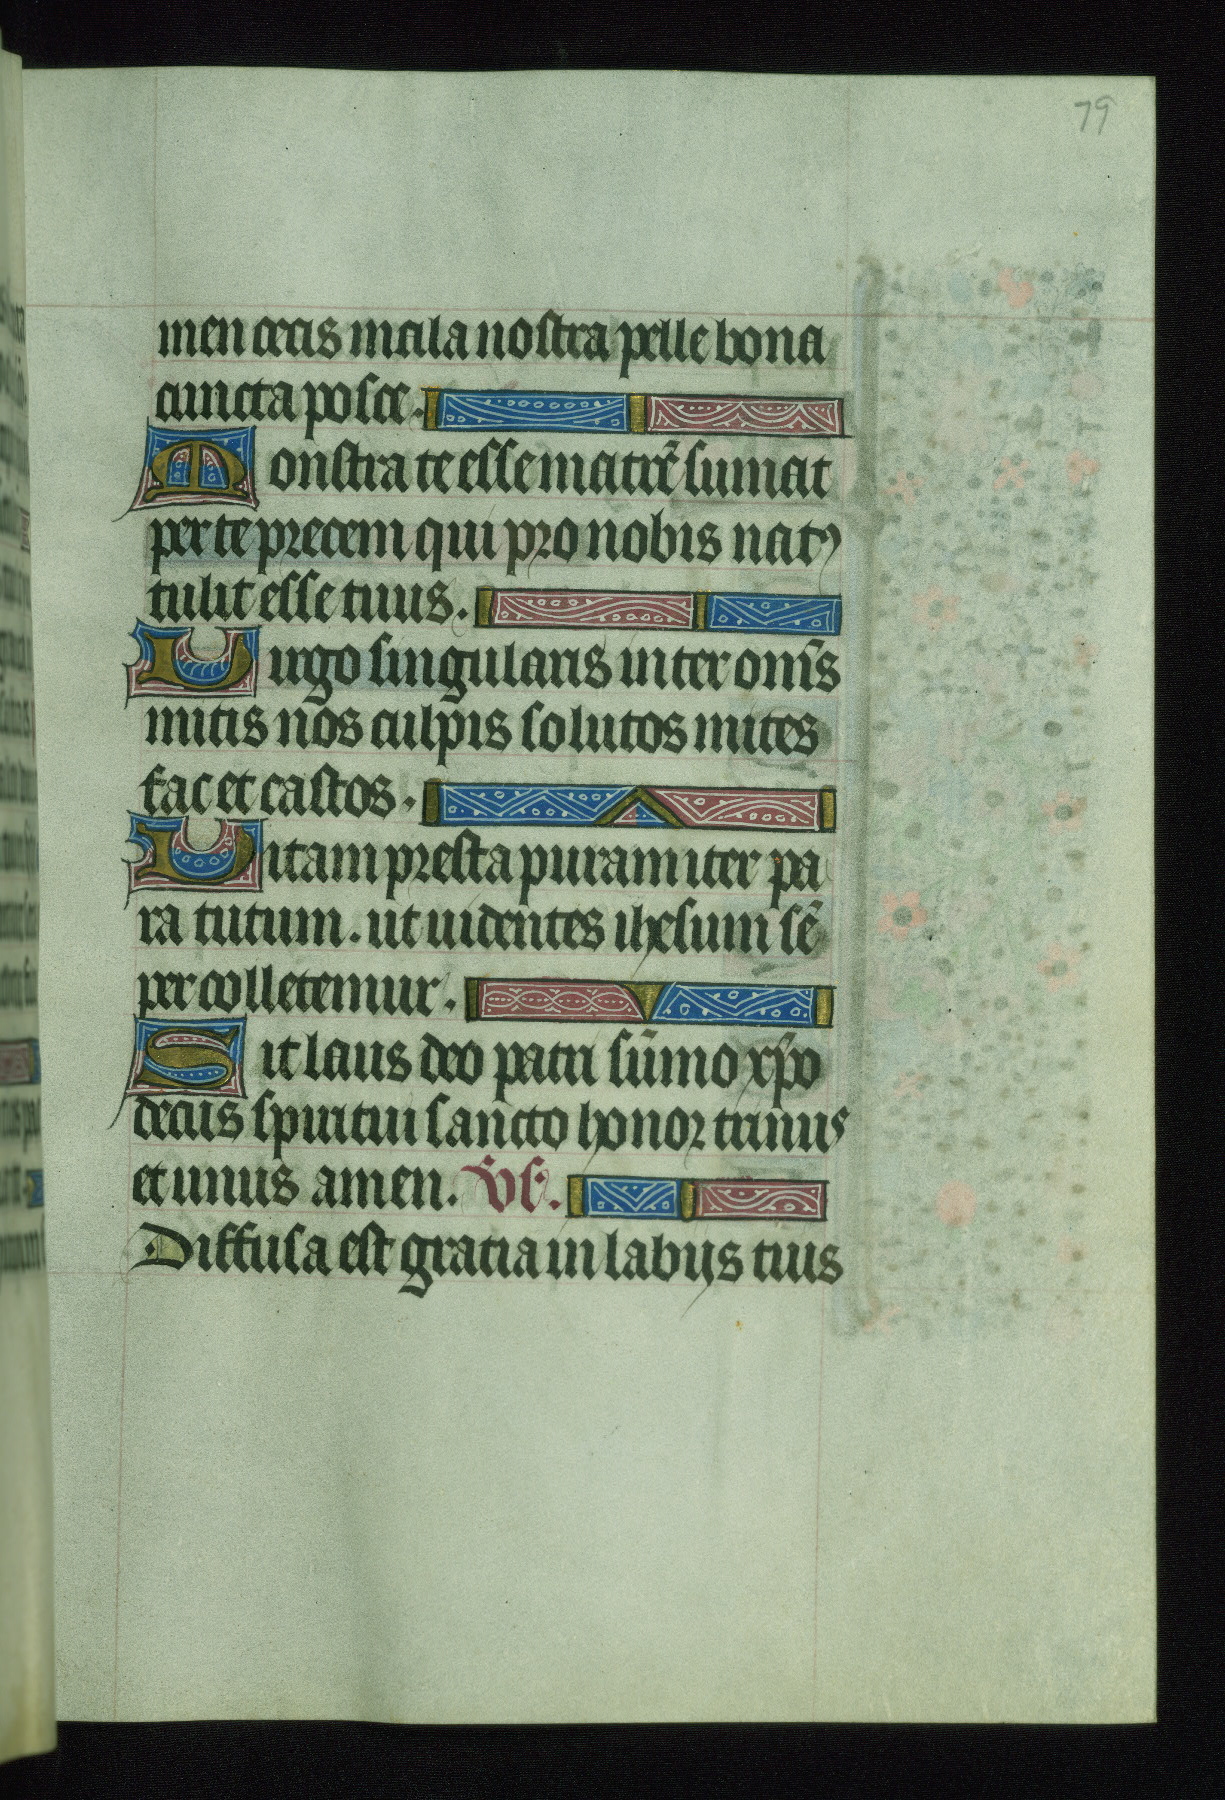 79
men cecis mala nostra pelle bona
cuncta posce.
Monstra te esse matrē sumat
per te precem qui pro nobis natꝰ
tulit esse tuus.
Uirgo singularis inter om̄s
mitis nos culpis solutos mites
fac et castos.
Uitam presta puram iter pa
ra tutum. ut uidentes ihesum sē
per colletemur.
Sit laus deo patri sūmo xp̄o
decus spiritui sancto honor trinus
et unus amen. Vs̄.
Diffusa est gratia in labijs tuis